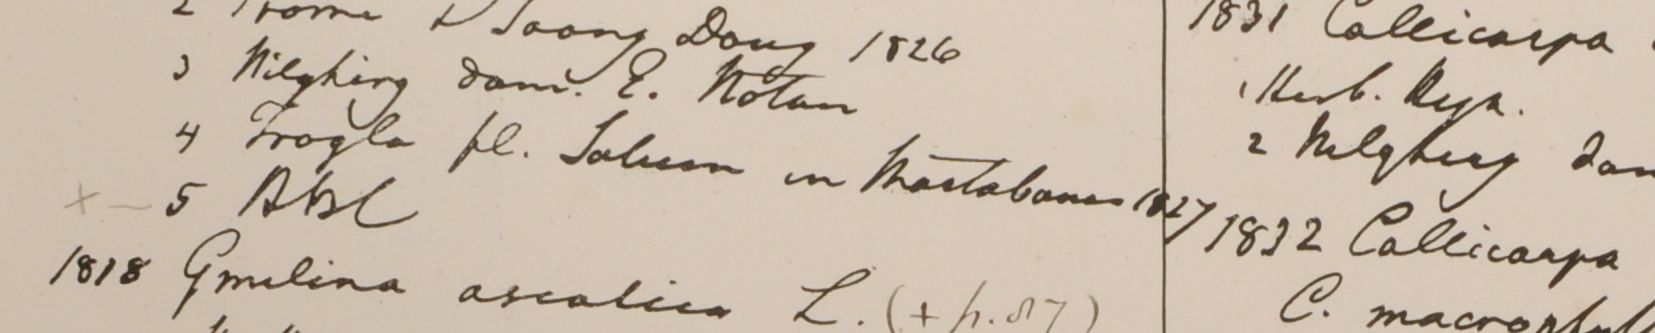 2 Prome & Toong Dong 1826
3 Nilghiry dom. E. Noton
4 Trogla fl. Saluen in Martabania 1827
5 HBC
1818 Gmelina asiatica L. (+ p. 87)
1831 Callicarpa
1 Herb. Heyn.
2 Nilghiry dom
1832 Callicarpa
C. macrophyll